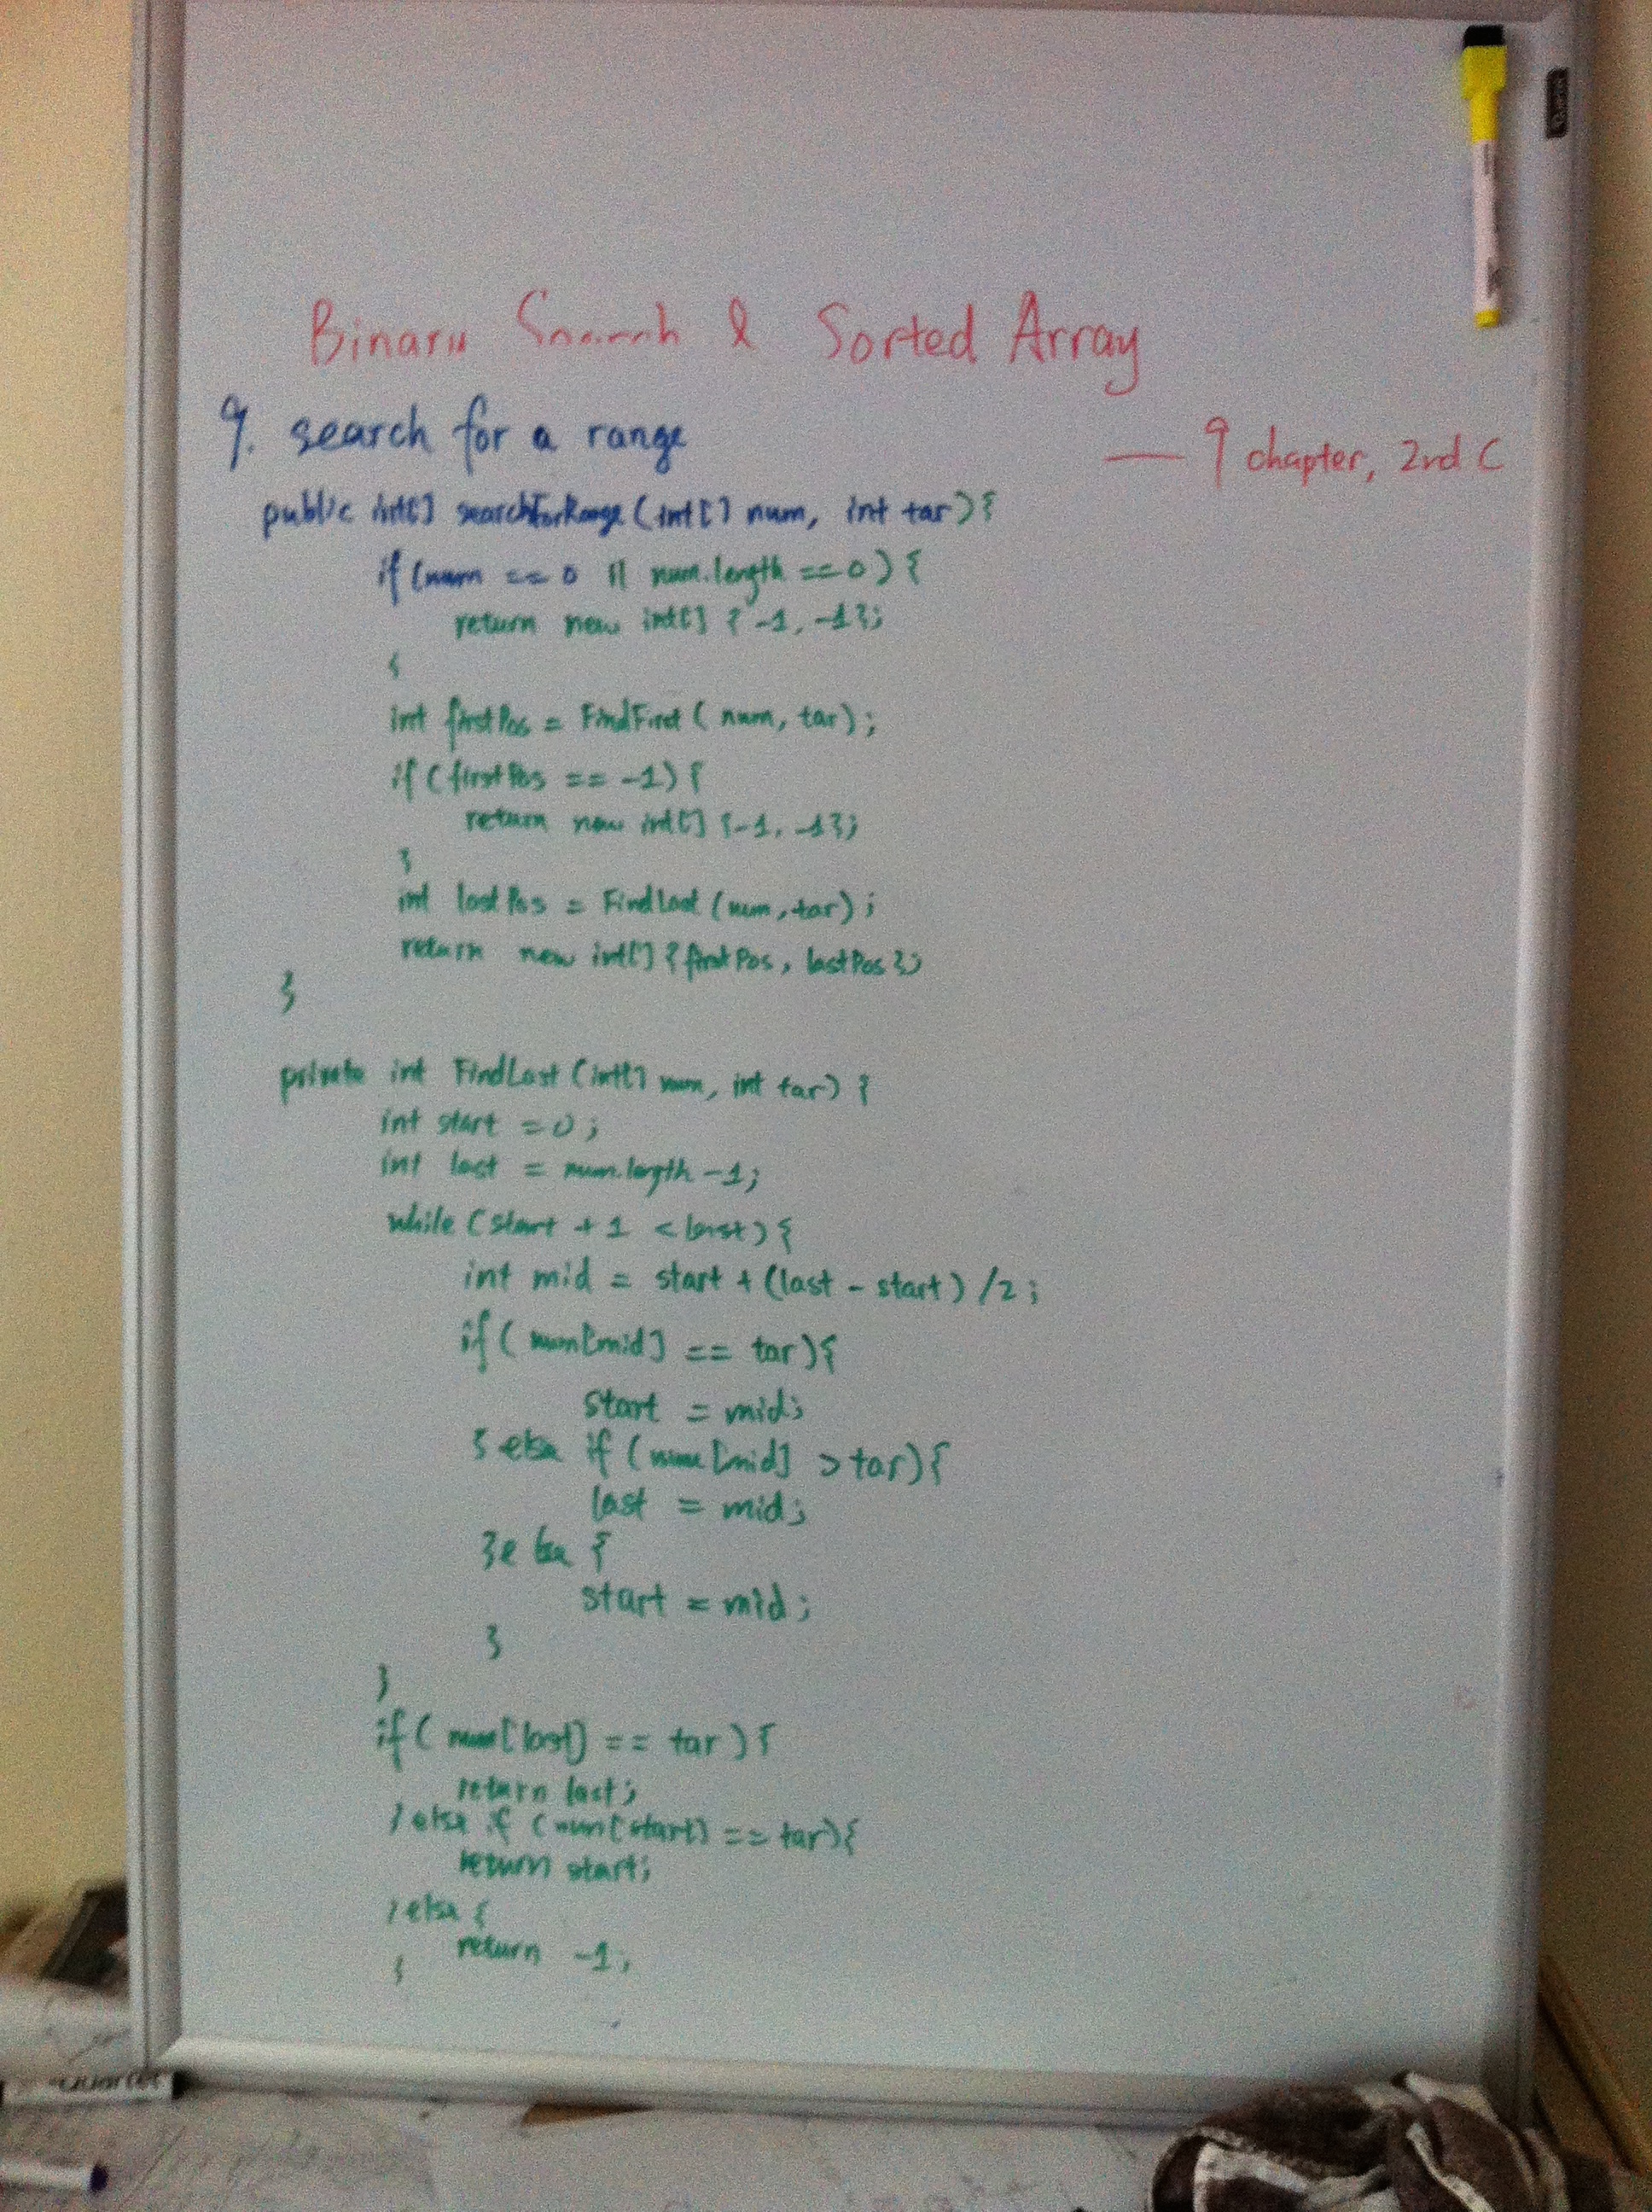 Binary Search & Sorted Array
9. search for a range
— 9 chapter, 2rd C
public int[] searchForRange (int[] num, int tar) {
if (num == 0 || num.length == 0) {
return new int[] { -1, -1};
}
int firstPos = FindFirst ( num, tar);
if (firstPos == -1) {
return new int[] {-1, -1};
}
int lastPos = FindLast (num, tar);
return new int[] {firstPos, lastPos};
}
private int FindLast (int[] num, int tar) {
int start = 0;
int last = num.length -1;
while (start + 1 < last) {
int mid = start + (last - start) /2;
if ( num[mid] == tar) {
start = mid;
} else if (num [mid] > tar) {
last = mid;
} else {
start = mid;
}
}
if ( num[last] == tar) {
return last;
} else if (num[start] == tar) {
return start;
} else {
return -1;
}
Quartet